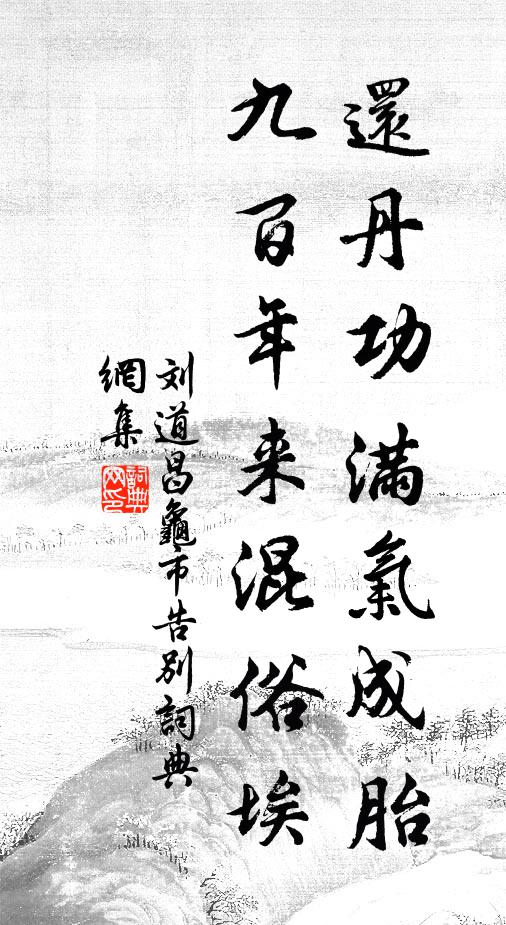 還丹功滿氣成胎
九百年来混俗埃
刘道昌龜市告别詞典
網集
詞典
网印